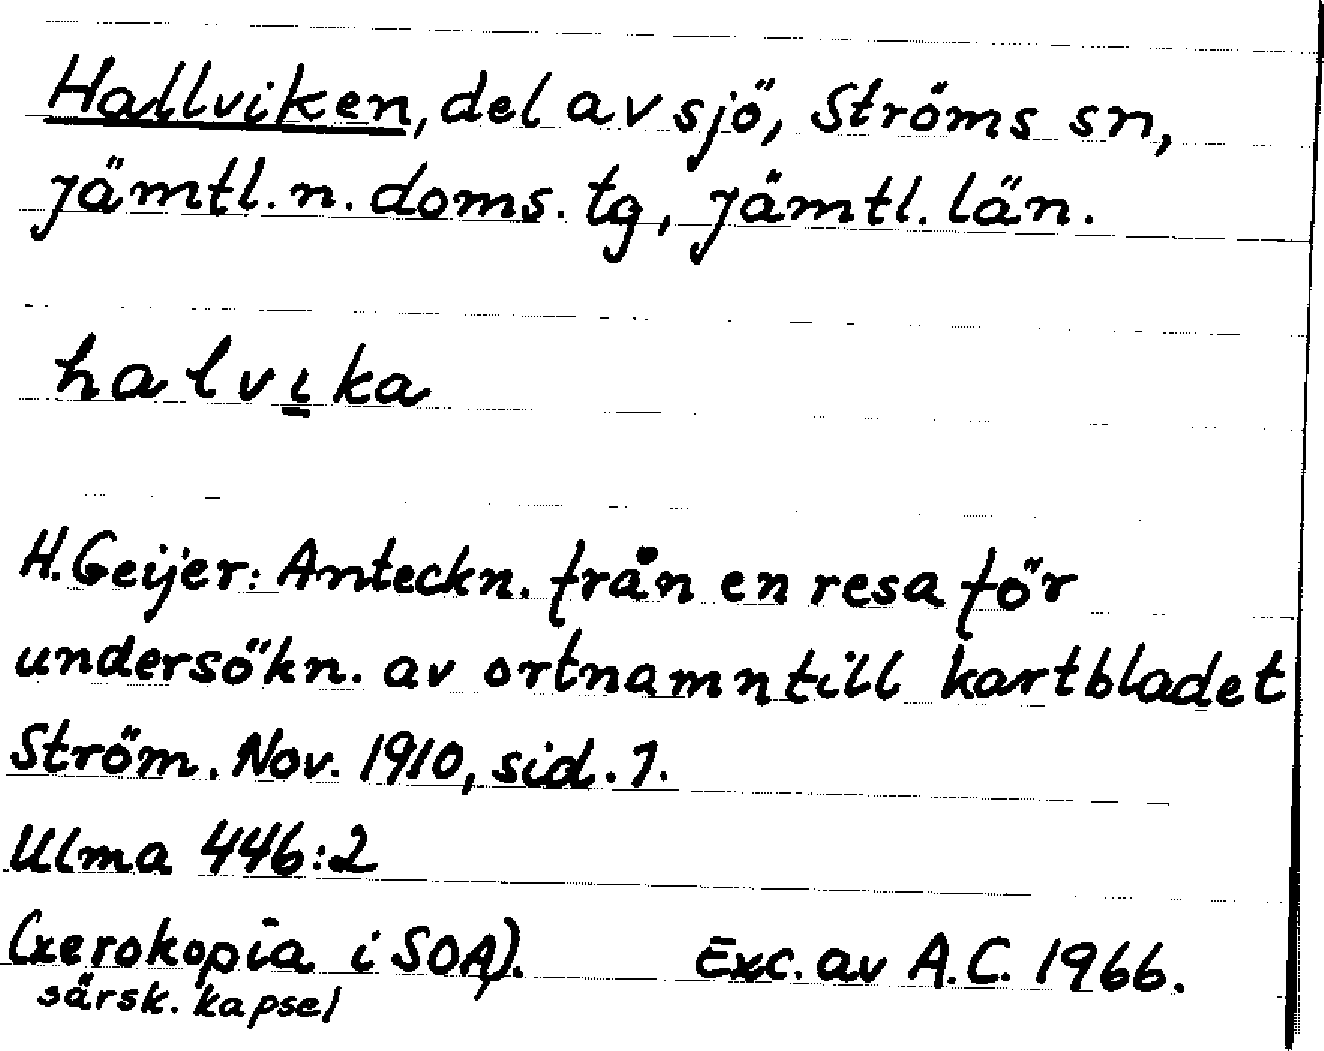 Hallviken, del av sjö, Ströms sn,
Jämtl. n. doms. tg, Jämtl. län.
halvi̱ka
H. Geijer: Anteckn. från en resa för
undersökn. av ortnamn till kartbladet
Ström. Nov. 1910, sid. 1.
Ulma 446:2
(xerokopia i SOA). Exc. av A.C. 1966.
särsk. kapsel